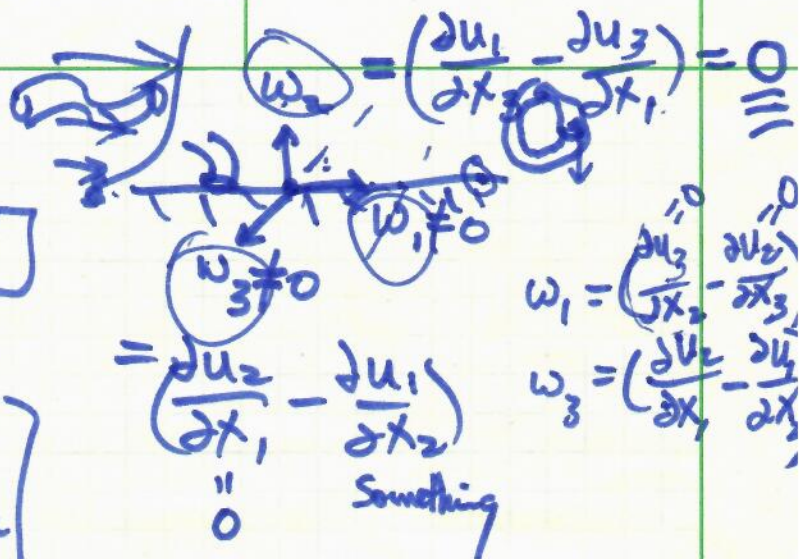 ω₂ = (∂u₁/∂x₃ − ∂u₃/∂x₁) = 0
ω₁ ≠ 0
ω₃ ≠ 0
= (∂u₂/∂x₁ − ∂u₁/∂x₂)
= 0
Something
= 0 = 0
ω₁ = (∂u₃/∂x₂ − ∂u₂/∂x₃)
ω₃ = (∂u₂/∂x₁ − ∂u₁/∂x₂